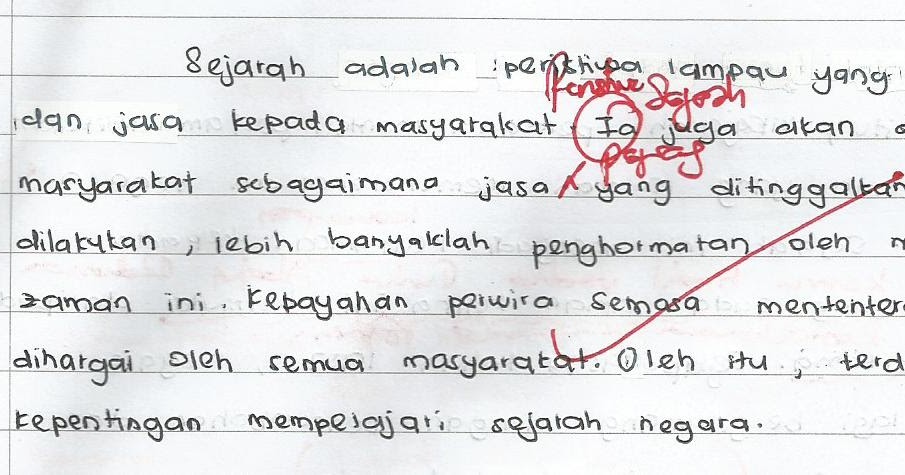 Sejarah adalah peristiwa lampau yang
dan jasa kepada masyarakat. Ia juga akan
masyarakat sebagaimana jasa yang ditinggalkan
dilakukan, lebih banyaklah penghormatan oleh
zaman ini. Kebayahan perwira semasa mententer
dihargai oleh semua masyarakat. Oleh itu, terd
kepentingan mempelajari sejarah negara.